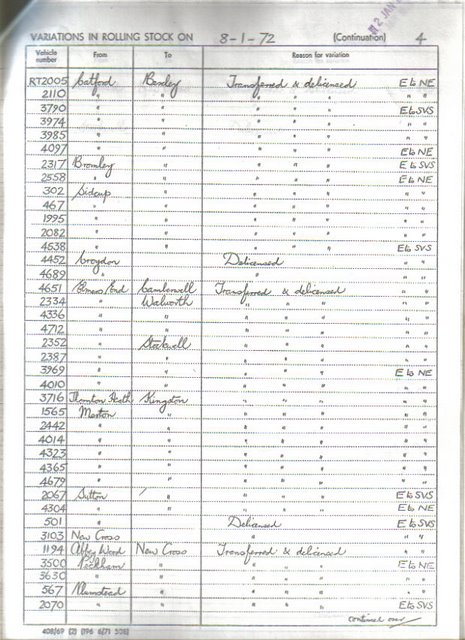 2 JAN
VARIATIONS IN ROLLING STOCK ON 8-1-72 (Continuation) 4
Vehicle number From To Reason for variation
RT2005 Catford Bexley Transferred & delicensed E to NE
2110 " " " " " " "
3790 " " " " " E to SVS
3974 " " " " " " "
3985 " " " " " " "
4097 " " " " " E to NE
2317 Bromley " " " " E to SVS
2558 " " " " " E to NE
302 Sidcup " " " " " "
467 " " " " " " "
1995 " " " " " " "
2082 " " " " " " "
4538 " " " " " E to SVS
4452 Croydon Delicensed " "
4689 " " " "
4651 Elmers End Camberwell Transferred & delicensed " "
2334 " Walworth " " " " "
4336 " " " " " " "
4712 " " " " " " "
2352 " Stockwell " " " " "
2387 " " " " " " "
3969 " " " " " E to NE
4010 " " " " " " "
3716 Thornton Heath Kingston " " " " "
1565 Merton " " " " " "
2442 " " " " " " "
4014 " " " " " " "
4323 " " " " " " "
4365 " " " " " " "
4679 " " " " " " "
2067 Sutton " " " " E to SVS
4304 " " " " " E to NE
501 " Delicensed E to SVS
3103 New Cross " " "
1194 Abbey Wood New Cross Transferred & delicensed " "
3500 Peckham " " " " E to NE
3630 " " " " " " "
567 Plumstead " " " " " "
2070 " " " " " E to SVS
continued over
408/69 (2) (196 6/71 508)